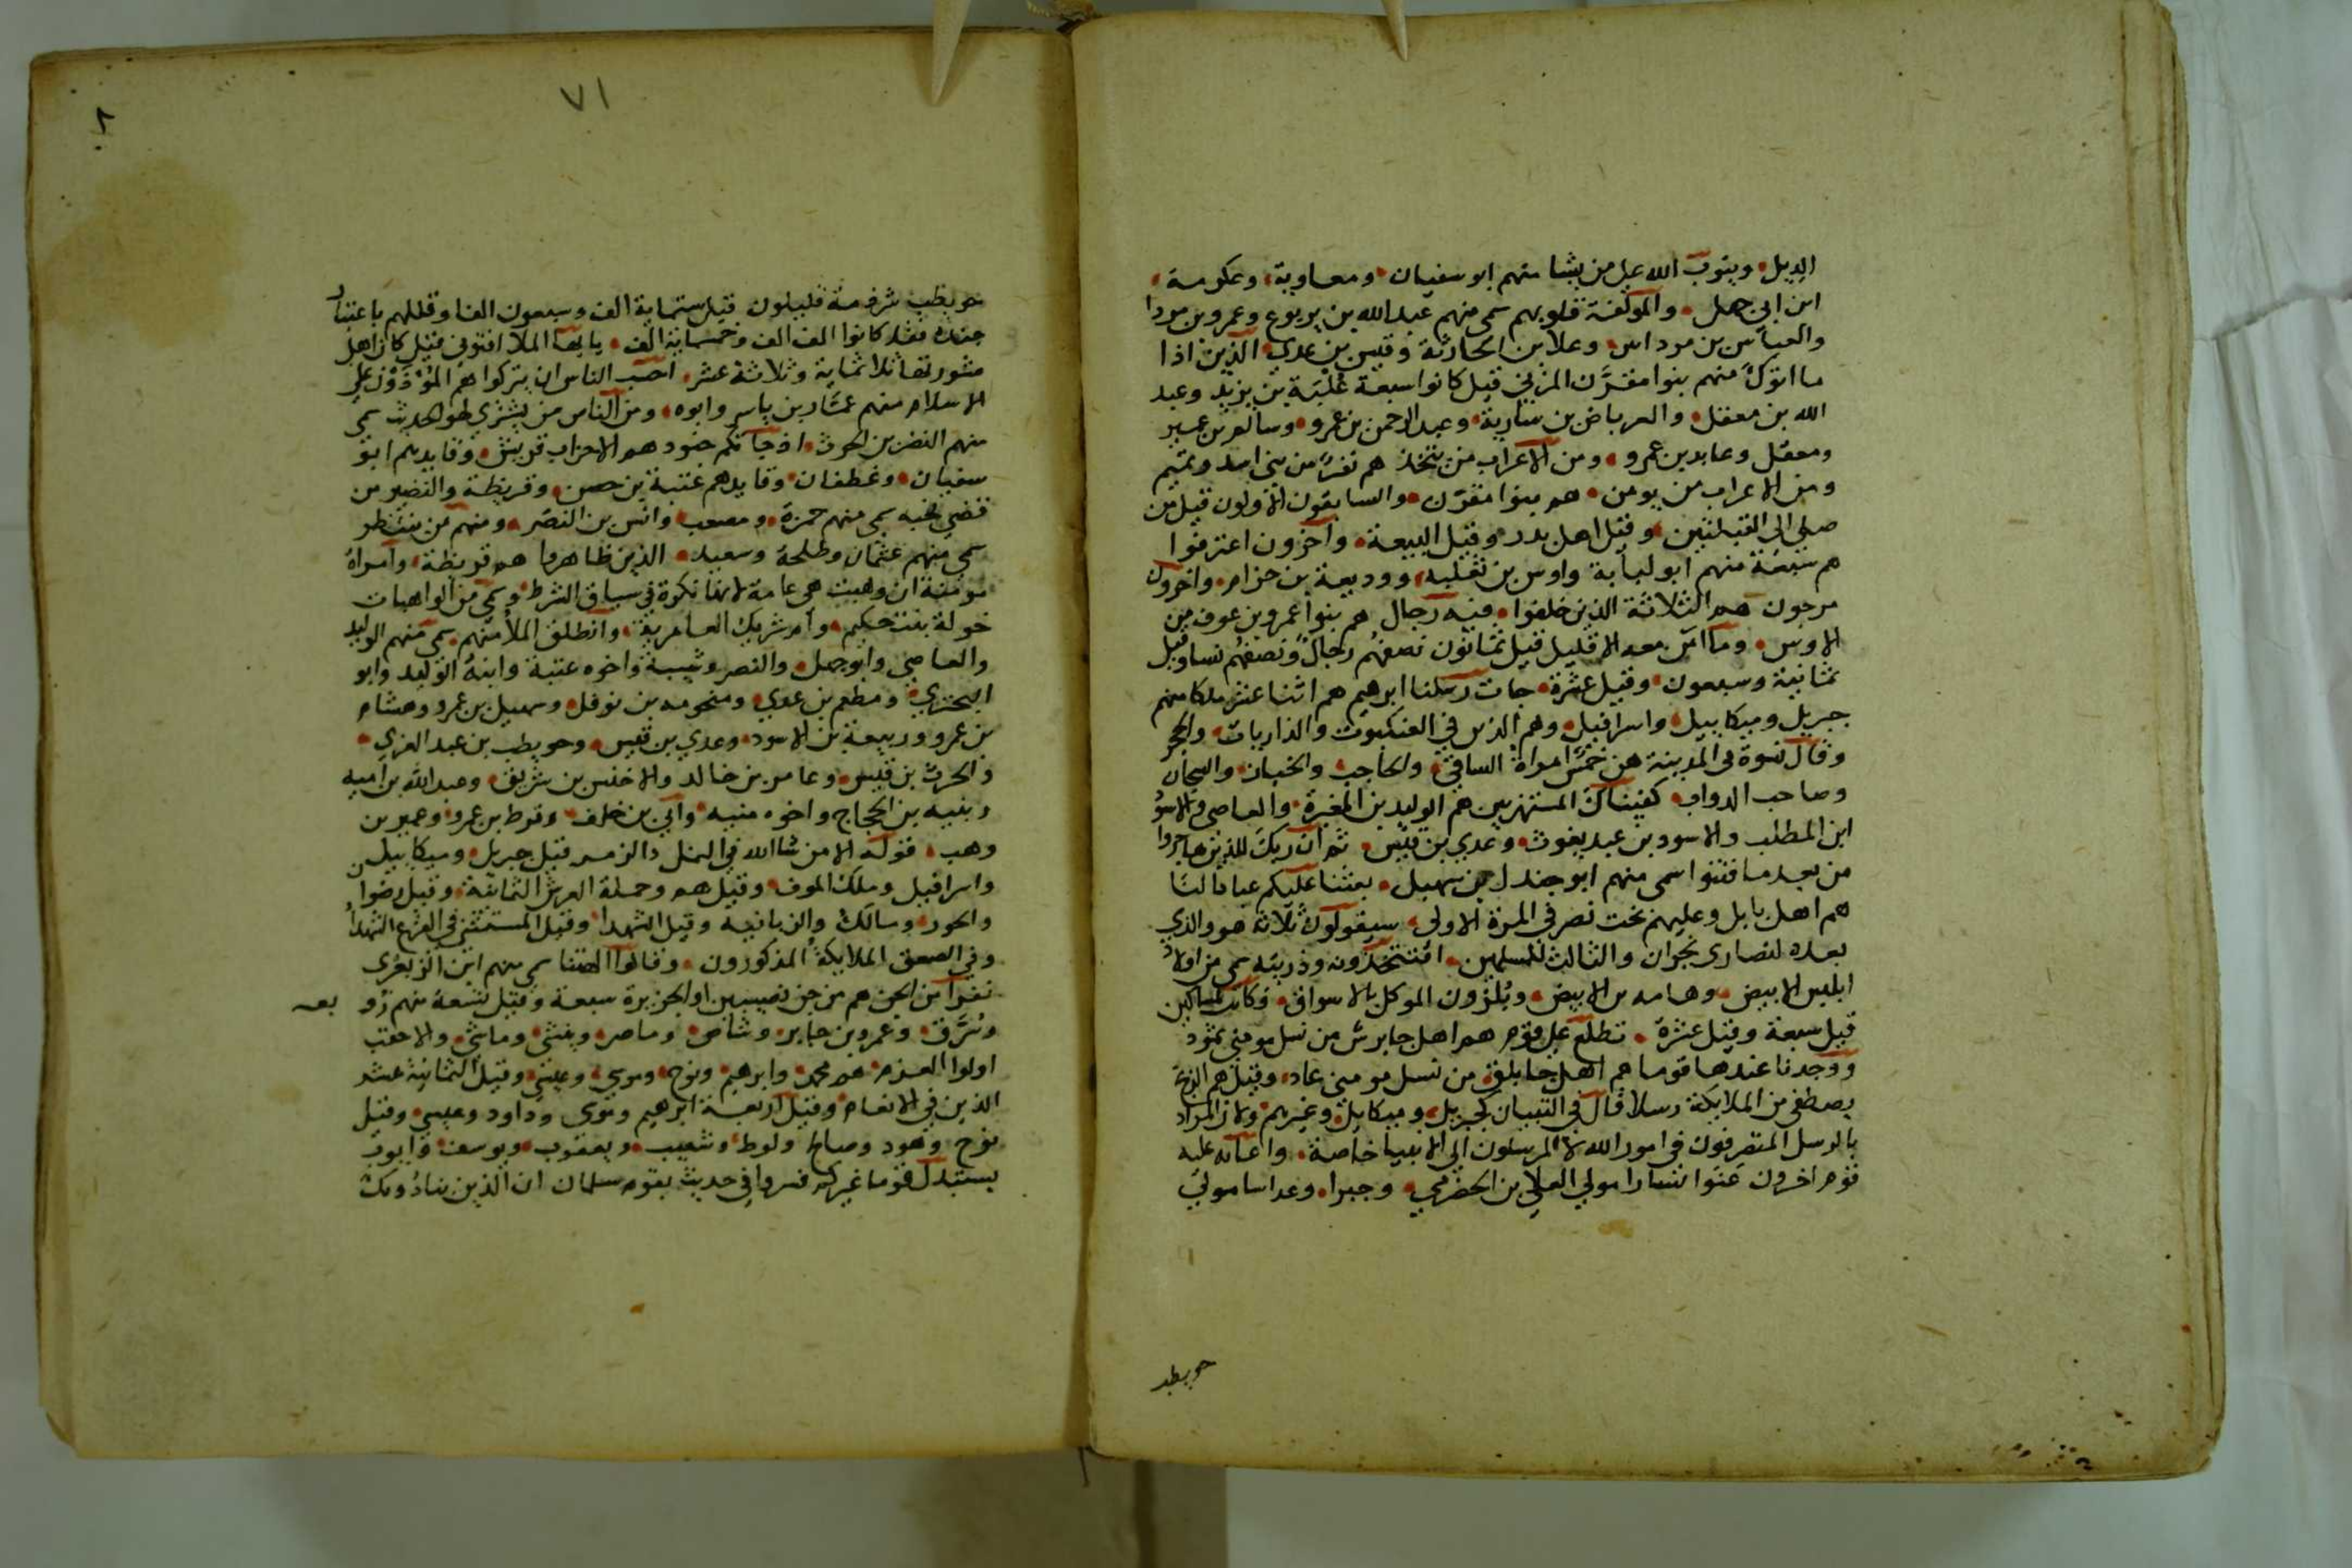 الديل ويتوب الله على من يشا منهم ابو سفيان ومعاوية وعكرمة
ابن ابي جهل والمولفة قلوبهم سمى منهم عبد الله بن يربوع وعمرو بن مردا
والعباس بن مرداس وعلا بن الحارثة وقيس بن عدي الذين اذا
ما اتوك منهم بنوا مقرن المزني قيل كانوا سبعة علبة بن يزيد وعبد
الله بن معقل والعرباض بن سارية وعبد الرحمن بن عمرو وسالم بن عمير
ومعقل وعابد بن عمرو ومن الاعراب من يتخذ هم نفر من بني اسد وتميم
ومن الاعراب من يومن هم بنوا مقرن والسابقون الاولون قيل من
صلى الى القبلتين وقيل اهل بدر وقيل البيعة وآخرون اعترفوا
هم سبعة منهم ابو لبابة واوس بن ثعلبة ووديعة بن حزام واخرون
مرجون هم الثلاثة الذين خلفوا فيه رجال هم بنوا عمرو بن عوف من
الاوس وما آمن معه الا قليل قيل ثمانون نصفهم رجال ونصفهم نسا وقيل
ثمانية وسبعون وقيل عشرة جات رسلنا ابرهيم هم اثنا عشر ملكا منهم
جبريل وميكاييل واسرافيل وهم الذين في العنكبوت والذاريات والحجر
وقال نسوة في المدينة هن خمس امراة الساقي والحاجب والخباز والسجان
وصاحب الدواب كفيناك المستهزيين هم الوليد بن المغيرة والعاصي والاسود
ابن المطلب والاسود بن عبد يغوث وعدي بن قيس ثم ان ربك للذين هاجروا
من بعد ما فتنوا سمى منهم ابو جندل بن سهيل بعثنا عليكم عبادا لنا
هم اهل بابل وعليهم بخت نصر في المرة الاولى سيقولون ثلاثة هو والذي
بعده لنصارى نجران والثالث للمسلمين افتتخذونه وذريته سمى من اولاد
ابليس الابيض وهامه بن الابيض وبلزون الموكل بالاسواق فكانت لمساكين
قيل سبعة وقيل عشرة تطلع على قوم هم اهل جابرس من نسل مومني ثمود
ووجدنا عندها قوما هم اهل جابلق من نسل مومني عاد وقيل هم الزنج
يصطفي من الملايكة رسلا قال في التبيان كجبريل وميكايل وغيرهم ولان المراد
بالرسل المتصرفون في امور الله لا المرسلون الى الانبيا خاصة واعانه عليه
قوم اخرون عنوا يسارا مولى العلا بن الحضرمي وجبرا وعداسا مولى
حويطب
٧١
حويطب شرذمة قليلون قيل ستماية الف وسبعون الفا وقللهم باعتبار
جنده فقد كانوا الف الف وخمسماية الف يا ايها الملا افتوني قيل كان اهل
مشورتها ثلاثماية وثلاثة عشر احسب الناس ان يتركوا هم المؤذون على
الاسلام منهم عمار بن ياسر وابوه ومن الناس من يشتري لهو الحديث سمى
منهم النضر بن الحرث اذ جاتكم جنود هم الاحزاب قريش وقايدهم ابو
سفيان وغطفان وقايدهم عتبة بن حصن وقريظة والنضير من
قضى نحبه سمى منهم حمزة ومصعب وانس بن النضر ومنهم من ينتظر
سمى منهم عثمان وطلحة وسعيد الذين ظاهروا هم قريظة وامراة
مومنة ان وهبت هي عامة لانها نكرة في سياق الشرط وسمى من الواهبات
خولة بنت حكيم وام شريك العامرية وانطلق الملا منهم سمى منهم الوليد
والعاصي وابو جهل والنضر وشيبة واخوه عتبة وابنه الوليد وابو
البختري ومطعم بن عدي ومخرمه بن نوفل وسهيل بن عمرو وهشام
بن عمرو وربيعة بن الاسود وعدي بن قيس وحويطب بن عبد العزي
والحرث بن قيس وعامر بن خالد والاخنس بن شريق وعبد الله بن اميه
ونبيه بن الحجاج واخوه منبه وابي بن خلف وقرط بن عمرو وعمير بن
وهب قوله الا من شا الله في النمل والزمر قيل جبريل وميكاييل
واسرافيل وملك الموت وقيل هم وحملة العرش الثمانية وقيل رضوان
والحور ومالك والزبانية وقيل الشهدا وقيل المستثنى في الفزع الشهدا
وفي الصعق الملايكة المذكورون وقالوا الهتنا سمى منهم ابن الزبعرى
نفرا من الجن هم من جن نصيبين او الجزيرة سبعة وقيل تسعة منهم زو بعه
وسرق وعمرو بن جابر وشاص وماصر ومنشى وماشي والاحقب
اولوا العزم هم محمد وابرهيم ونوح وموسى وعيسى وقيل الثمانية عشر
الذين في الانعام وقيل اربعة ابرهيم وموسى وداود وعيسى وقيل
نوح وهود وصالح ولوط وشعيب ويعقوب ويوسف وايوب
يستبدل قوما غيركم فسروا في حديث بقوم سلمان ان الذين ينادونك